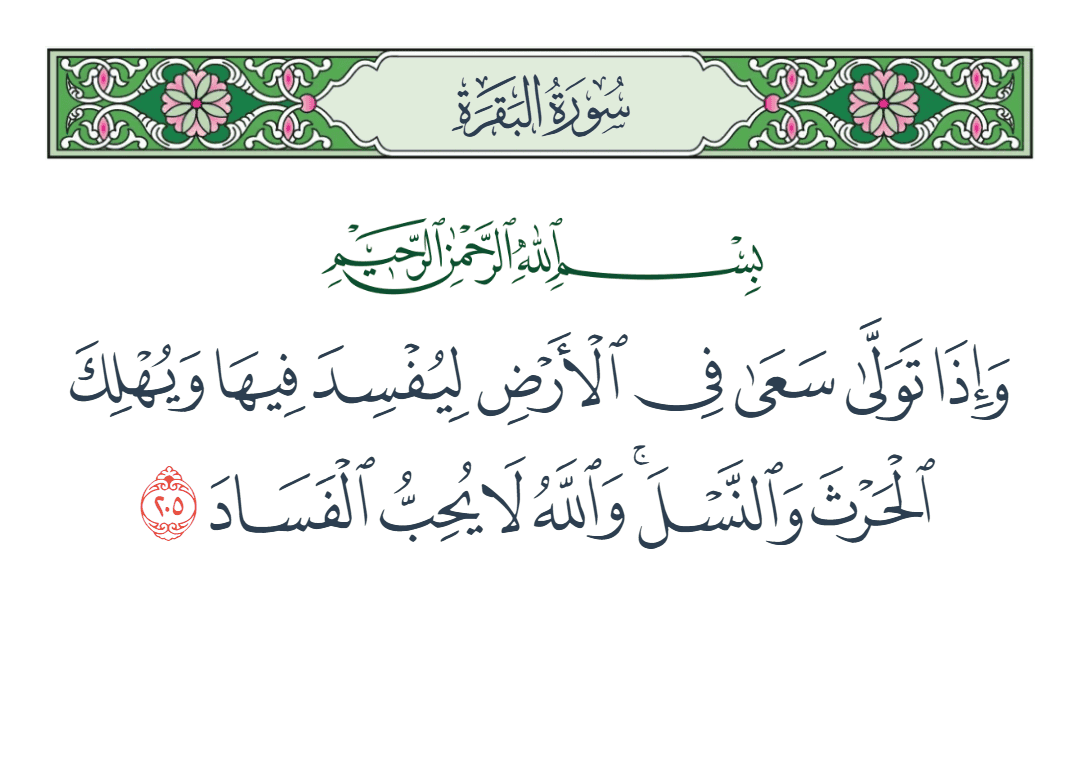 سُورَةُ البَقَرَةِ
بِسْمِ ٱللَّهِ ٱلرَّحْمَٰنِ ٱلرَّحِيمِ
وَإِذَا تَوَلَّىٰ سَعَىٰ فِى ٱلْأَرْضِ لِيُفْسِدَ فِيهَا وَيُهْلِكَ
ٱلْحَرْثَ وَٱلنَّسْلَ ۚ وَٱللَّهُ لَا يُحِبُّ ٱلْفَسَادَ ٢٠٥